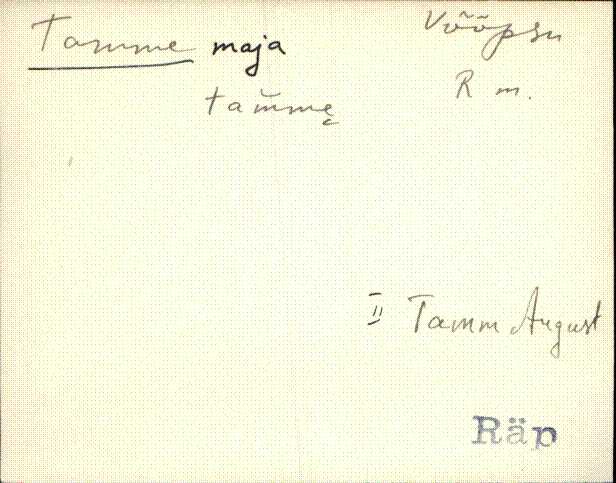 Tamme maja
Võõpsu
R m.
tam̆mę
II Tamm August
Räp